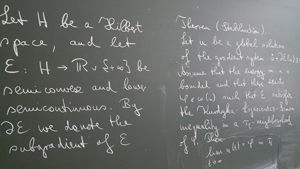 Let H be a Hilbert
space, and let
ℰ: H → ℝ ∪ {+∞} be
semiconvex and lower
semicontinuous. By
∂ℰ we denote the
subgradient of ℰ
Theorem
Let u be a global solution
of the gradient system
Assume that the energy is
bounded and that there exists
φ ∈ ω(u) such that ℰ satisfies
the Kurdyka-Łojasiewicz-Simon
inequality in a neighborhood
of φ. Then
lim u(t) = φ in